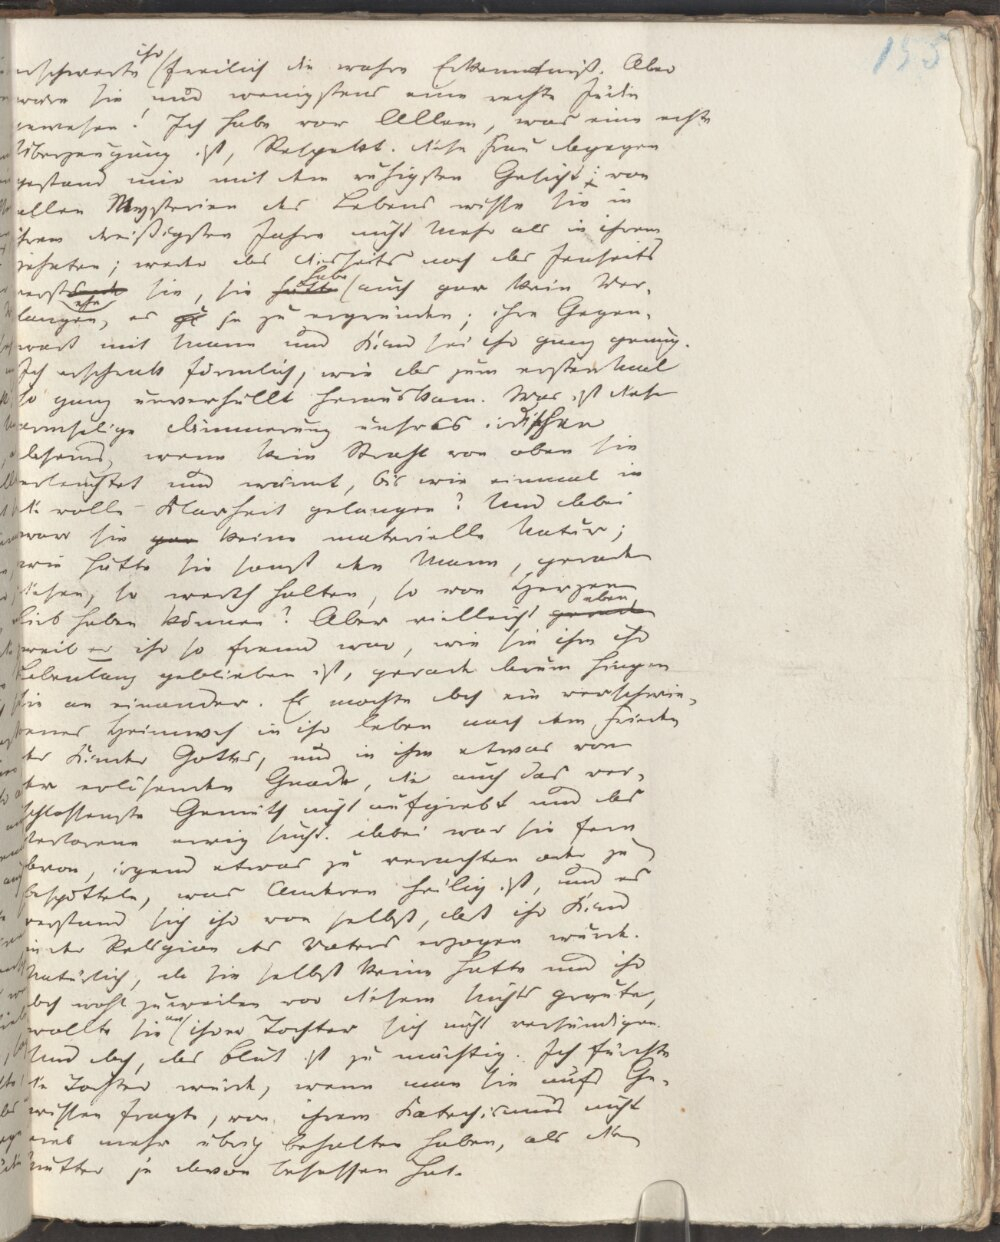 155
erschwerte ihr freilich die wahre Erkenntniß. Aber
wäre sie nur wenigstens eine rechte Jüdin
gewesen! Ich habe vor Allem, was eine echte
Überzeugung ist, Respekt. Diese Frau dagegen
gestand mir mit dem ruhigsten Gesicht: von
allen Mysterien des Lebens wisse sie in
ihrem dreißigsten Jahre nicht mehr als in ihrem
zehnten; weder das Diesseits noch das Jenseits
verstehe sie, sie habe auch gar kein Ver-
langen, es je zu ergründen; ihre Gegen-
wart mit Mann und Kind sei ihr ganz genug.
Ich erschrak förmlich, wie das zum erstenmal
so ganz unverhüllt herauskam. Was ist diese
armselige Dämmerung unsres irdischen
Daseins, wenn kein Strahl von oben sie
erleuchtet und wärmt, bis wir einmal in
die volle Klarheit gelangen? Und dabei
war sie gar keine materielle Natur;
wie hätte sie sonst den Mann, gerade
diesen, so werth halten, so von Herzen
lieb haben können? Aber vielleicht eben
weil er ihr so fremd war, wie sie ihm ihr
Lebenlang geblieben ist, gerade darum hingen
sie an einander. Es mochte doch ein verschwie-
genes Heimweh in ihr leben nach dem Frieden
der Kinder Gottes, und in ihm etwas von
der erlösenden Gnade, die auch das ver-
schlossenste Gemüth nicht aufgiebt und das
Verlorene ewig sucht. Dabei war sie fern
davon, irgend etwas zu verachten oder zu
bespötteln, was Anderen heilig ist, und es
verstand sich ihr von selbst, daß ihr Kind
in der Religion des Vaters erzogen würde.
Natürlich, da sie selbst keine hatte und ihr
doch wohl zuweilen vor diesem Nichts graute,
wollte sie an ihrer Tochter sich nicht versündigen.
Und doch, das Blut ist zu mächtig. Ich fürchte
die Tochter würde, wenn man sie aufs Ge-
wissen fragte, von ihrem Katechismus nicht
viel mehr übrig behalten haben, als die
Mutter je davon besessen hat.